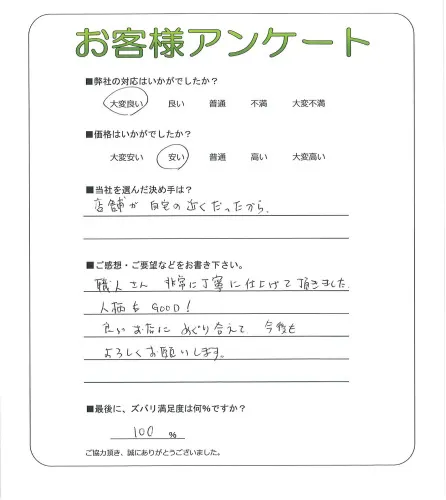 お客様アンケート
■弊社の対応はいかがでしたか?
大変良い 良い 普通 不満 大変不満
■価格はいかがでしたか?
大変安い 安い 普通 高い 大変高い
■当社を選んだ決め手は?
店舗が 自宅の近くだったから.
■ご感想・ご要望などをお書き下さい。
職人さん 非常に丁寧に仕上げて頂きました.
人柄もGOOD!
良いお店に めぐり合えて 今後も
よろしくお願いします。
■最後に、ズバリ満足度は何%ですか?
100 %
ご協力頂き、誠にありがとうございました。